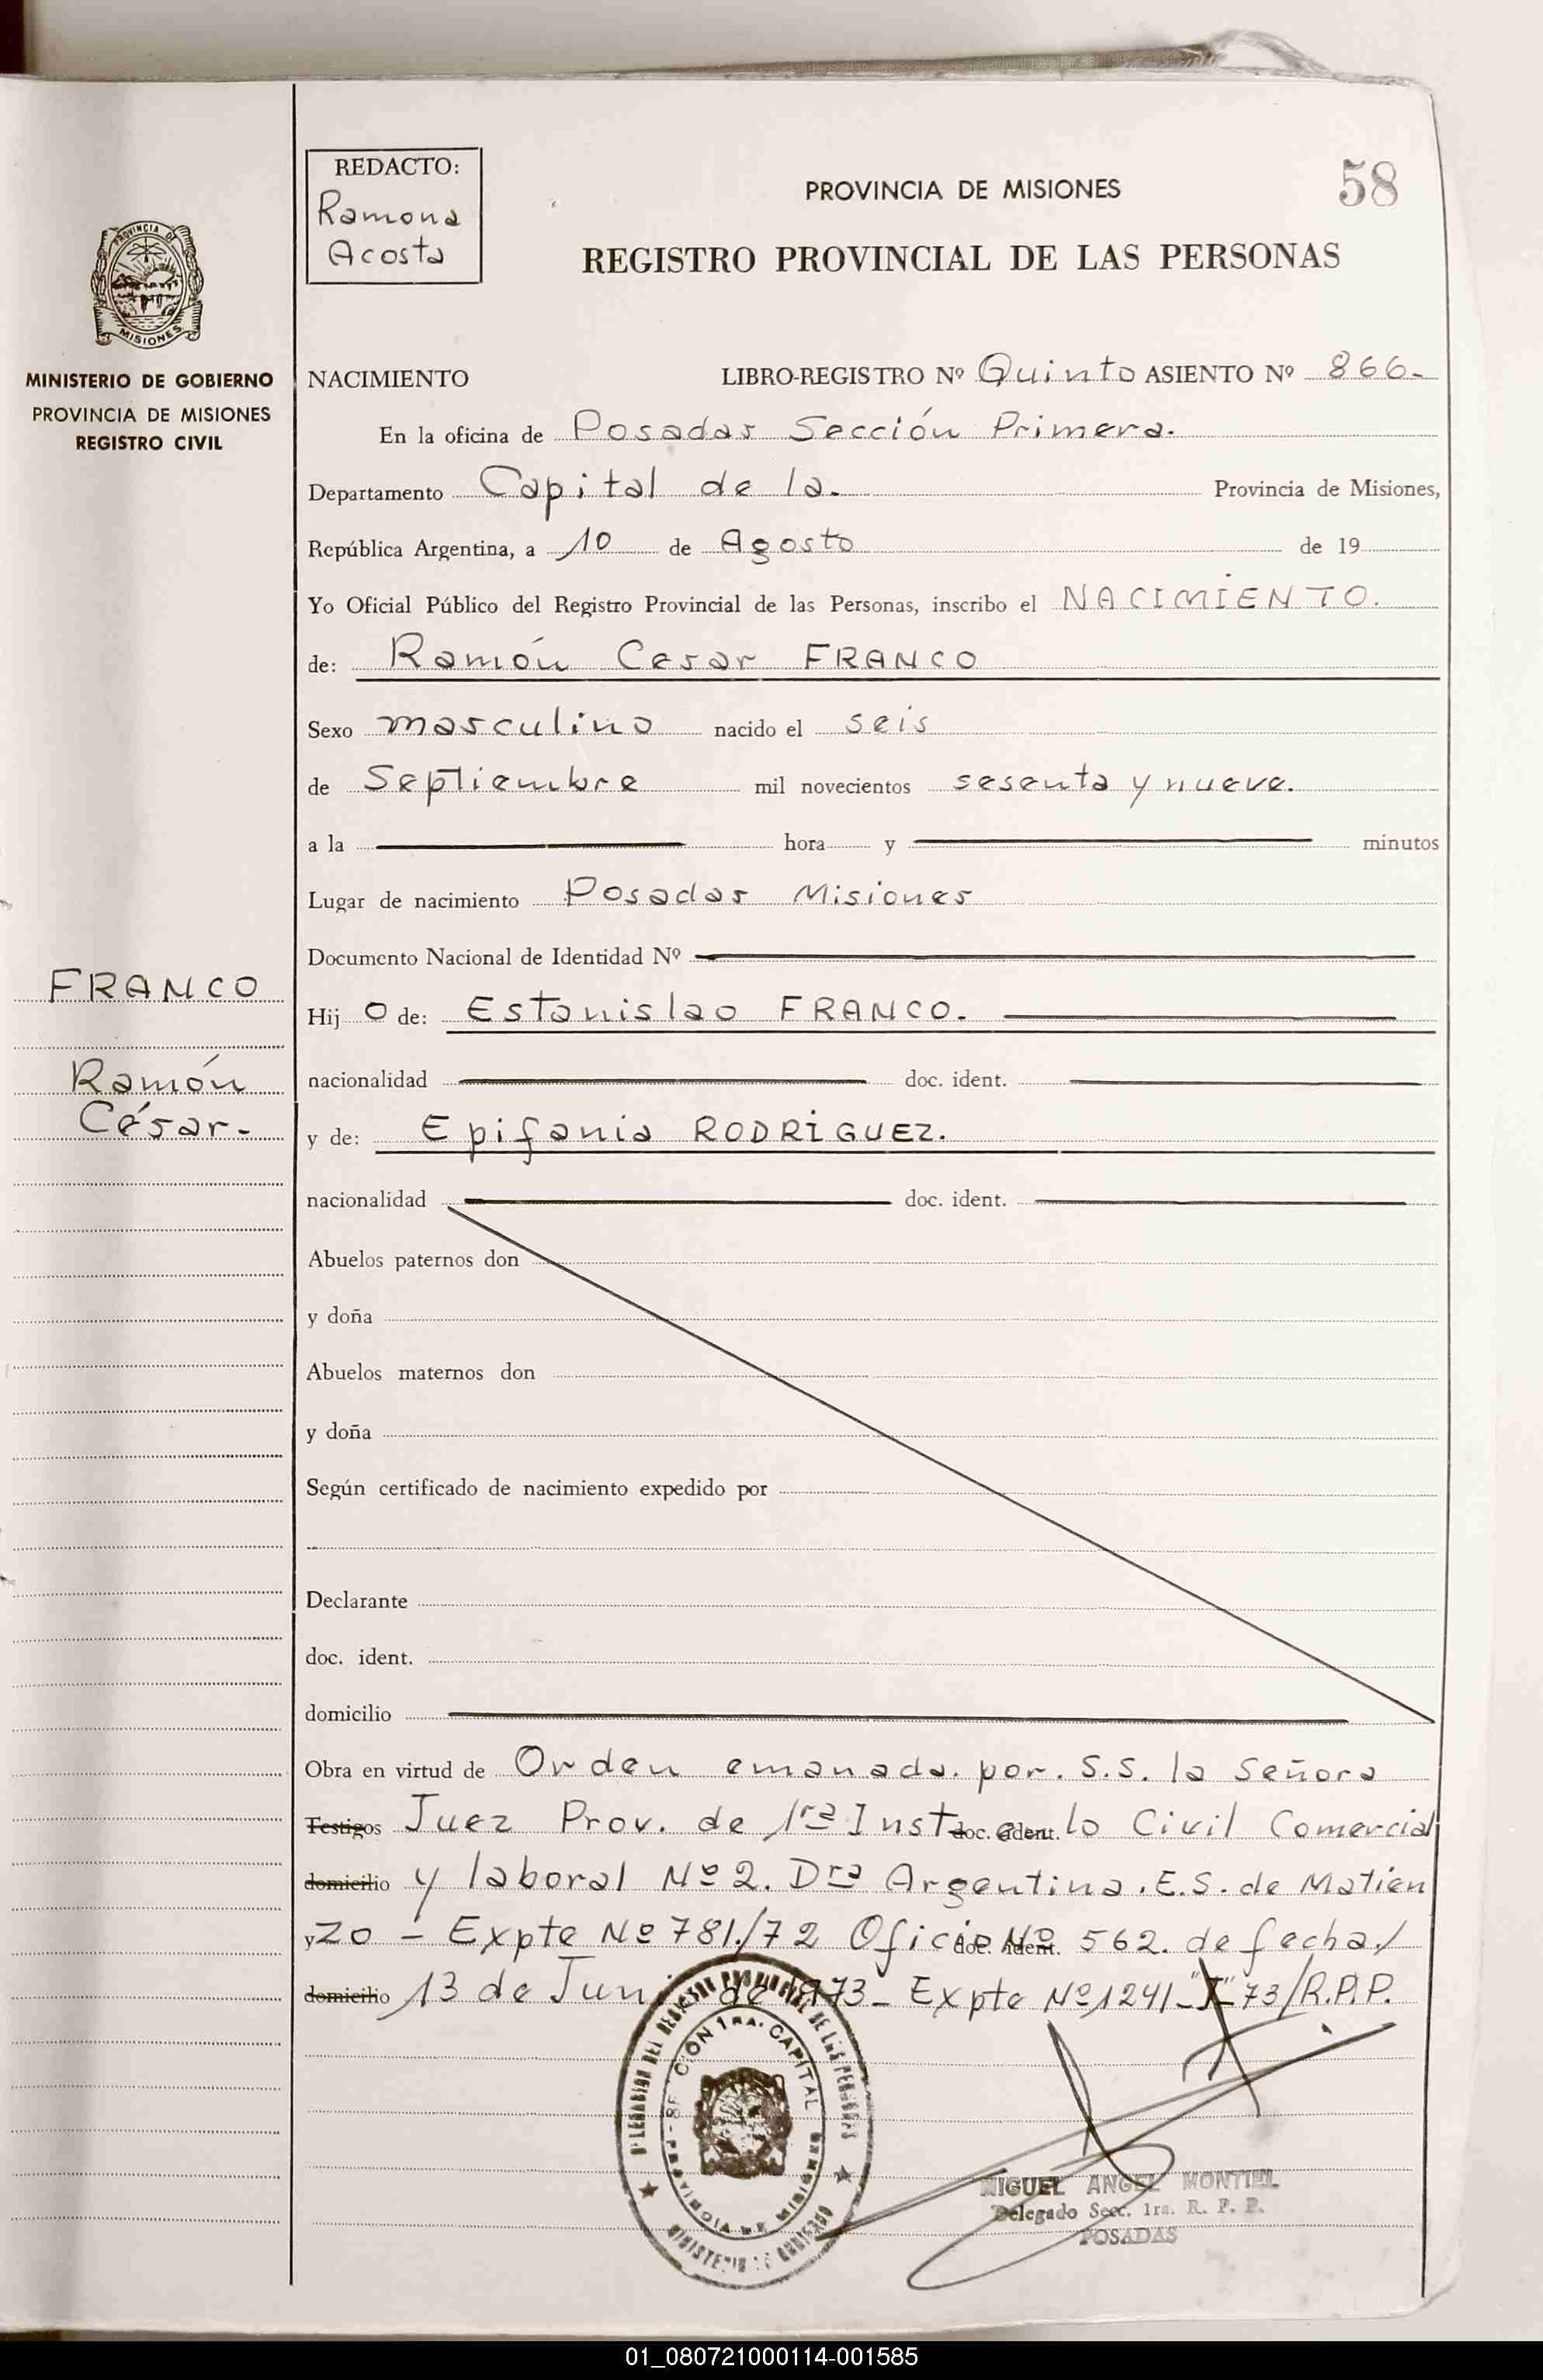 REDACTO:
Ramona
Acosta
58
PROVINCIA DE MISIONES
REGISTRO PROVINCIAL DE LAS PERSONAS
PROVINCIA DE
MISIONES
MINISTERIO DE GOBIERNO
PROVINCIA DE MISIONES
REGISTRO CIVIL
NACIMIENTO LIBRO-REGISTRO Nº Quinto ASIENTO Nº 866-
En la oficina de Posadas Sección Primera.
Departamento Capital de la. Provincia de Misiones,
República Argentina, a 10 de Agosto de 19
Yo Oficial Público del Registro Provincial de las Personas, inscribo el NACIMIENTO.
de: Ramón Cesar FRANCO
Sexo masculino nacido el seis
de Septiembre mil novecientos sesenta y nueve.
a la hora y minutos
Lugar de nacimiento Posadas Misiones
Documento Nacional de Identidad Nº
FRANCO
Ramón
César-
Hij o de: Estanislao FRANCO.
nacionalidad doc. ident.
y de: Epifania RODRIGUEZ.
nacionalidad doc. ident.
Abuelos paternos don
y doña
Abuelos maternos don
y doña
Según certificado de nacimiento expedido por
Declarante
doc. ident.
domicilio
Obra en virtud de Orden emanada. por. S.S. la Señora
Testigos Juez Prov. de 1ra Inst doc. ident. en lo Civil Comercial
domicilio y laboral Nº 2. Dra Argentina. E.S. de Matien
y zo - Expte Nº 781./72 Oficio Nº doc. ident. 562. de fecha/
domicilio 13 de Junio de 1973- Expte Nº 1241-"I"-73/R.P.P.
DELEGACION DEL REGISTRO PROVINCIAL DE LAS PERSONAS
SECCION 1RA. CAPITAL
PROVINCIA DE MISIONES
MINISTERIO DE GOBIERNO
MIGUEL ANGEL MONTIEL
Delegado Secc. 1ra. R. P. P.
POSADAS
01_080721000114-001585